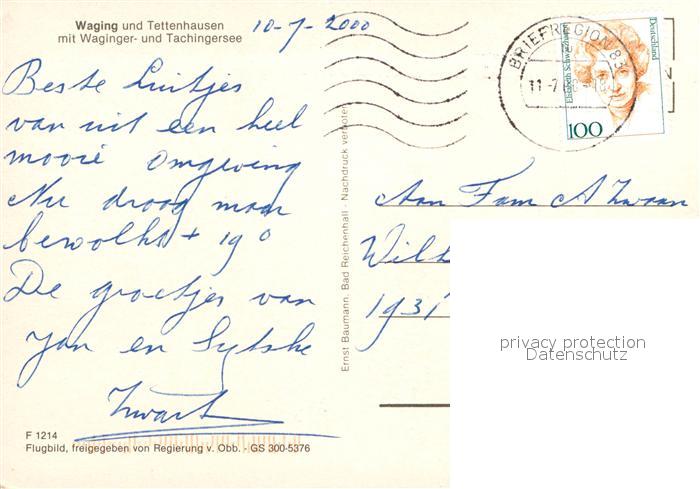 Waging und Tettenhausen
mit Waginger- und Tachingersee
10-7-2000
Beste Luitjes
van uit een heel
mooie omgeving
Nu droog maar
bewolkt + 19°
De groetjes van
Jan en Sytske
Zwart
F 1214
Flugbild, freigegeben von Regierung v. Obb. - GS 300-5376
Ernst Baumann, Bad Reichenhall - Nachdruck verboten
BRIEFREGION 83
Elisabeth Schwarzhaupt
Deutschland
100
Aan Fam A Zwaan
1931
privacy protection
Datenschutz